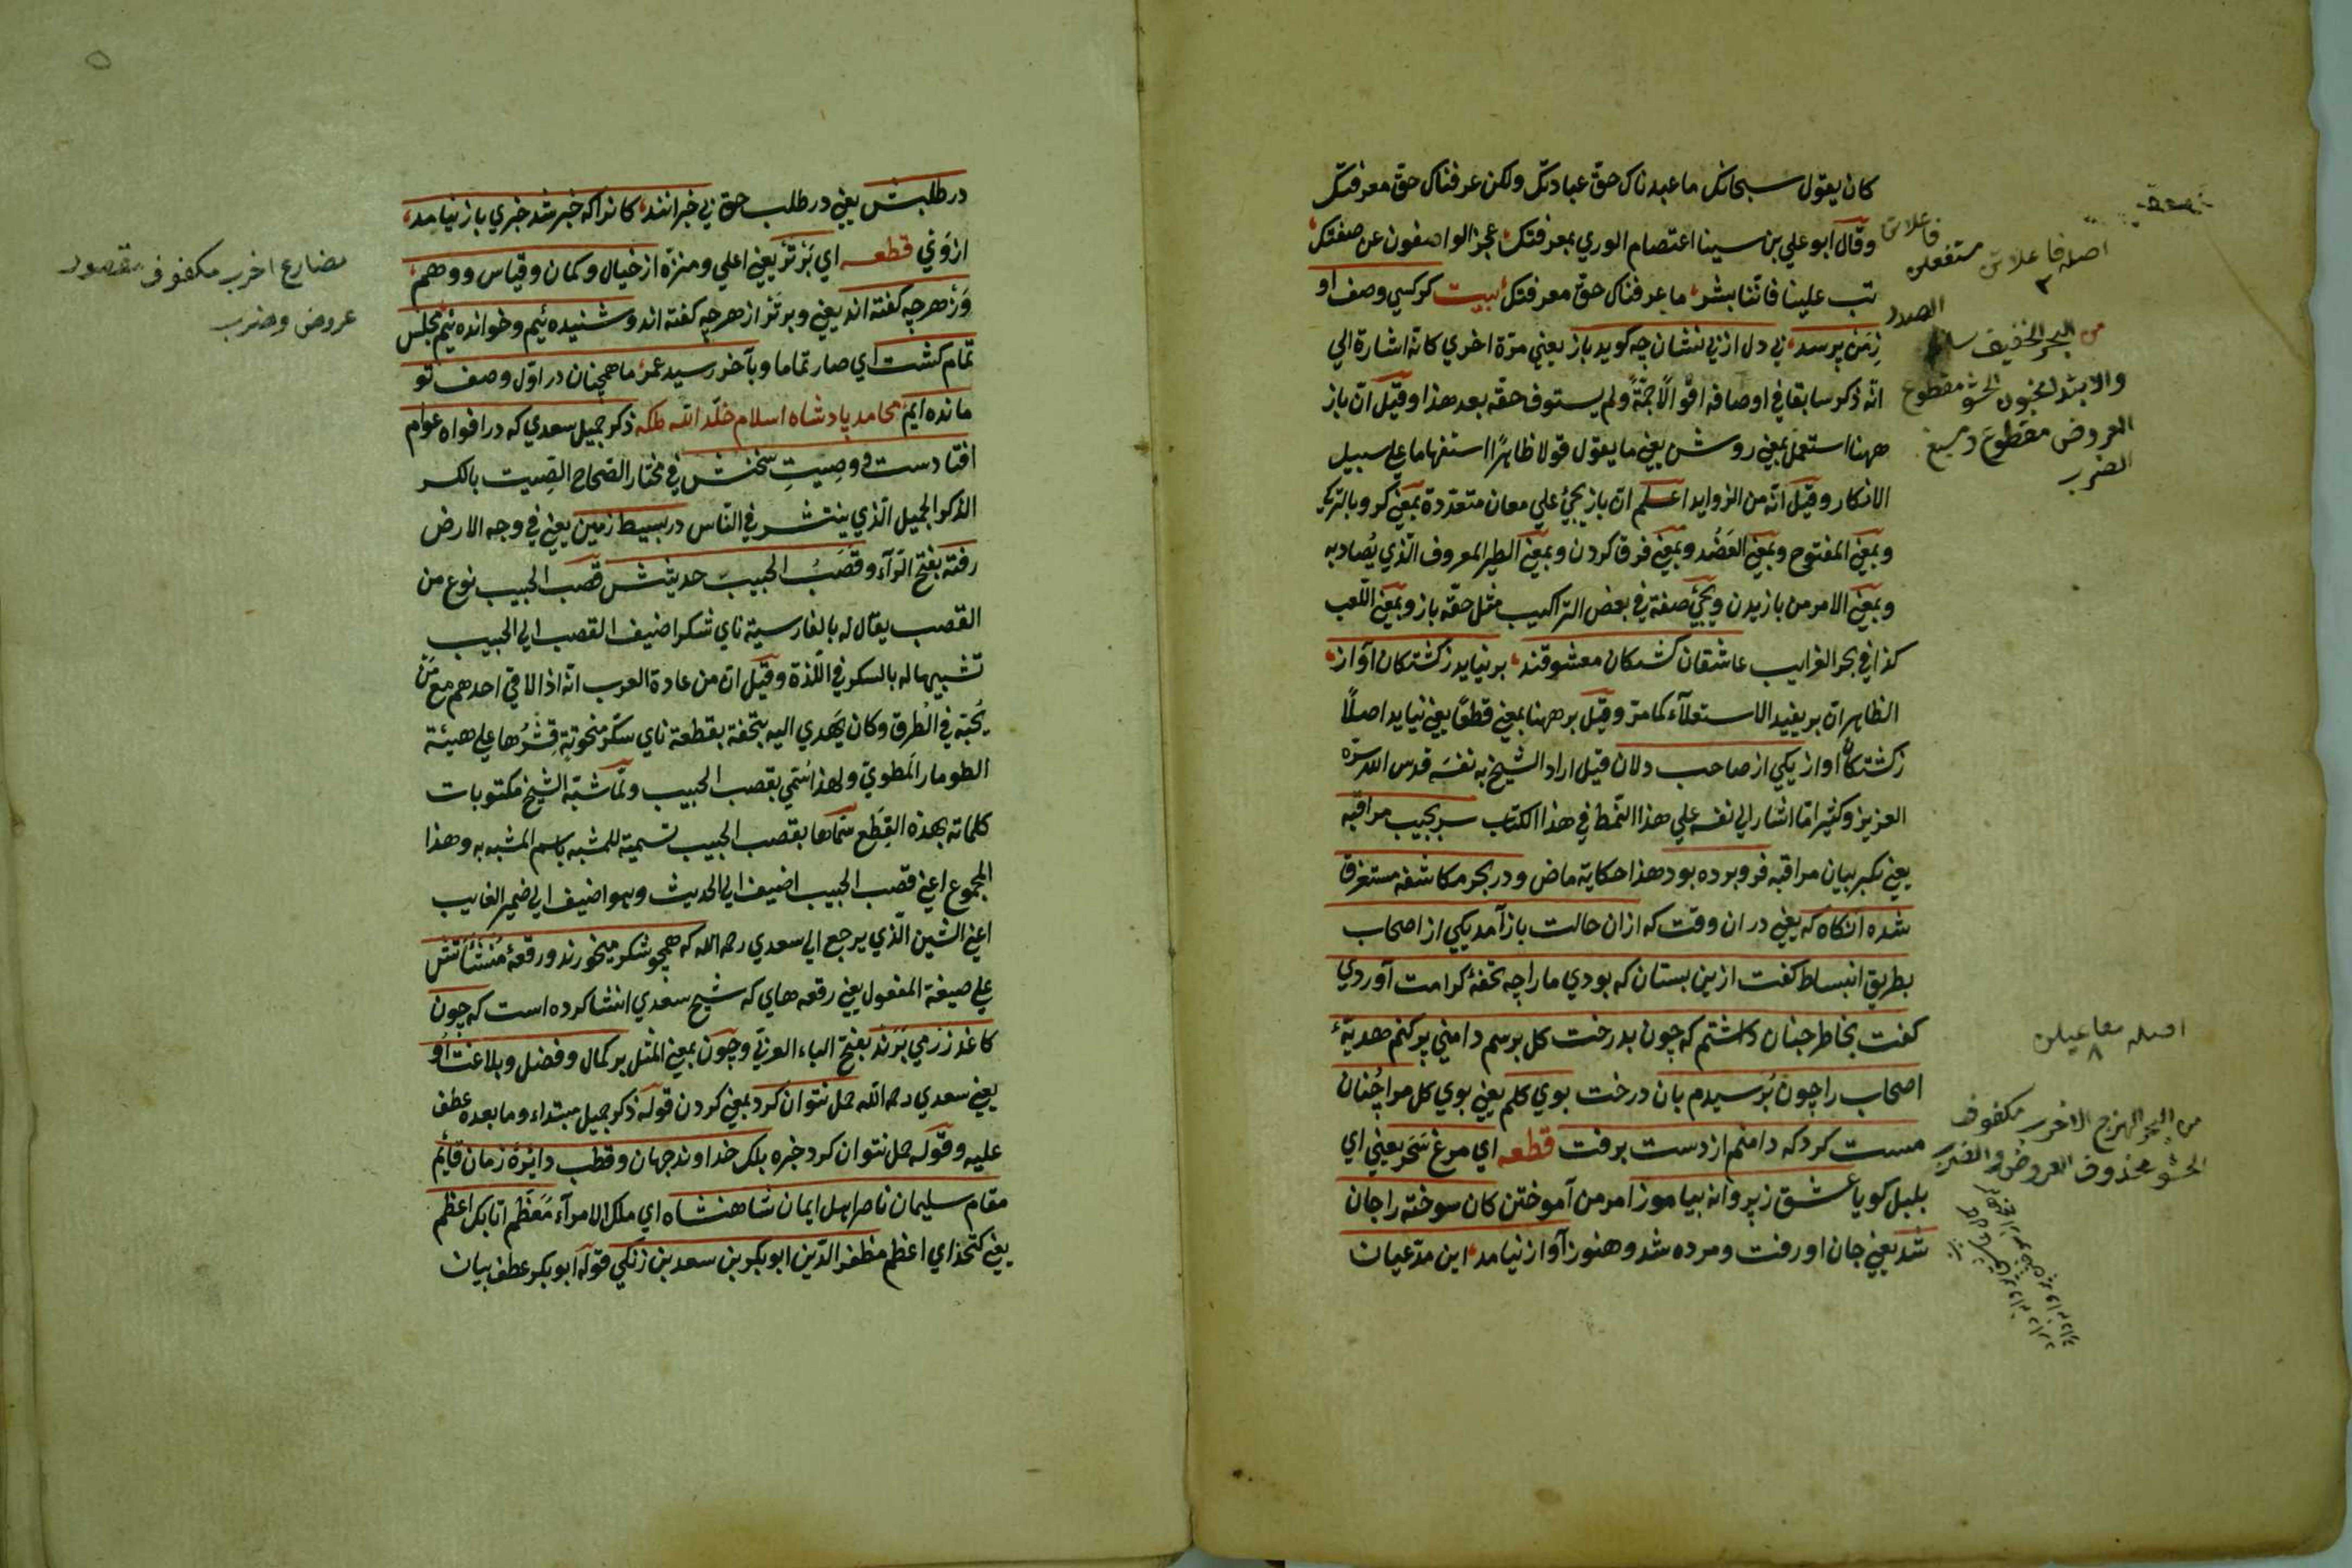 كان يقول سبحانك ما عبدناك حق عبادتك ولكن عرفناك حق معرفتك
وقال ابو علي بن سينا اعتصام الوري بمعرفتك، عجز الواصفون عن صفتك،
تب علينا فاننا بشر، ما عرفناك حق معرفتك، بيت كر كسي وصف او
زمن پرسد، بي دل از بي نشان چه كويد باز يعني مرة اخري كانه اشارة الي
انه ذكر سابقا في اوصافه اقوالا جمة ولم يستوف حقه بعد هذا وقيل ان باز
ههنا استعمل بمعني روشن يعني ما يقول قولا ظاهرا استفهاما علي سبيل
الانكار وقيل انه من الزوايد اعلم ان باز يجيئ علي معان متعددة بمعني كر وبالتركي
وبمعني المفتوح وبمعني العضد وبمعني فرق كردن وبمعني الطير المعروف الذي يصاد به
وبمعني الامر من بازيدن ويجيئ صفة في بعض التراكيب مثل حقه باز وبمعني اللعب
كذا في بحر الغرايب عاشقان كشتكان معشوقند، برنيايد زكشتكان آواز،
الظاهر ان بر يفيد الاستعلاء كما مر وقيل بر ههنا بمعني قطعا يعني نيايد اصلا
زكشتكان اواز يكي از صاحب دلان قيل اراد الشيخ به نفسه قدس الله سره
العزيز وكثيرا ما اشار الي نفسه علي هذا النمط في هذا الكتاب سر بجيب مراقبه
يعني بكريبان مراقبه فرو برده بود هذا حكاية ماض و در بحر مكاشفه مستغرق
شده انكاه كه يعني در ان وقت كه ازان حالت باز آمد يكي از اصحاب
بطريق انبساط كفت ازين بستان كه بودي مارا چه تحفه كرامت آوردي
كفت بخاطر چنان داشتم كه چون بدرخت كل برسم دامني پر كنم هدية
اصحاب را چون برسيدم بان درخت بوي كلم يعني بوي كل مرا چنان
مست كرد كه دامنم از دست برفت قطعه اي مرغ سحر يعني اي
بلبل كويا عشق ز پروانه بياموز امر من آموختن كان سوخته را جان
شد يعني جان او رفت و مرده شد وهنوز آواز نيامد، اين مدعيان
اصله فاعلاتن مستفعلن فاعلاتن
من البحر الخفيف
الصدر
والابتدا مخبون الحشو مقطوع
العروض مقطوع
الضرب
اصله مفاعيلن ٨
من البحر الهزج الاخرب مكفوف
الحشو محذوف العروض والضرب
در طلبش يعني در طلب حق بي خبرانند، كانرا كه خبر شد خبري باز نيامد،
ازوني قطعه اي برتر يعني اعلي ومنزه از خيال وكمان وقياس ووهم،
وز هر چه كفته اند يعني وبرتر از هر چه كفته اند وشنيده ئيم وخوانده ئيم مجلس
تمام كشت اي صار تماما وبآخر رسيد عمر، ما همچنان در اول وصف تو
مانده ايم، محامد پادشاه اسلام خلد الله ملكه ذكر جميل سعدي كه در افواه عوام
افتادست و وصيت سخنش في مختار الصحاح الصيت بالكسر
الذكر الجميل الذي ينتشر في الناس در بسيط زمين يعني في وجه الارض
رفته بفتح الراء وقصب الجيب حديثش قصب الجيب نوع من
القصب يقال له بالفارسية ناي شكر اضيف القصب الي الجيب
تشبيها له بالسكر في اللذة وقيل ان من عادة العرب انه اذا لاقي احدهم مع من
يحبه في الطرق وكان يهدي اليه بتحفة بقطعة ناي سكر منحوتة قشرها علي هيئة
الطومار المطوي ولهذا سمي بقصب الجيب ولما شبه الشيخ مكتوبات
كلماته بهذه القطع سماها بقصب الجيب تسمية للمشبه باسم المشبه به وهذا
المجموع اعني قصب الجيب اضيف الي الحديث وهو اضيف الي ضمير الغايب
اعني الشين الذي يرجع الي سعدي رحمه الله كه همچو شكر ميخورند ورقعه منشأتش
علي صيغة المفعول يعني رقعه هاي كه شيخ سعدي انشا كرده است كه چون
كاغذ زر مي برند بفتح الباء العربي وچون بمعني المثل بر كمال وفضل وبلاغت او
يعني سعدي رحمه الله حمل نتوان كرد بمعني كردن قوله ذكر جميل مبتداء وما بعده عطف
عليه وقوله حمل نتوان كرد خبره بلكه خداوند جهان وقطب دايرة زمان قايم
مقام سليمان ناصر اهل ايمان شاهنشاه اي ملك الامرآء معظم اتابك اعظم
يعني كتخداي اعظم مظفر الدين ابو بكر بن سعد بن زنكي قوله ابو بكر عطف بيان
مضارع اخرب مكفوف مقصور
عروض وضرب